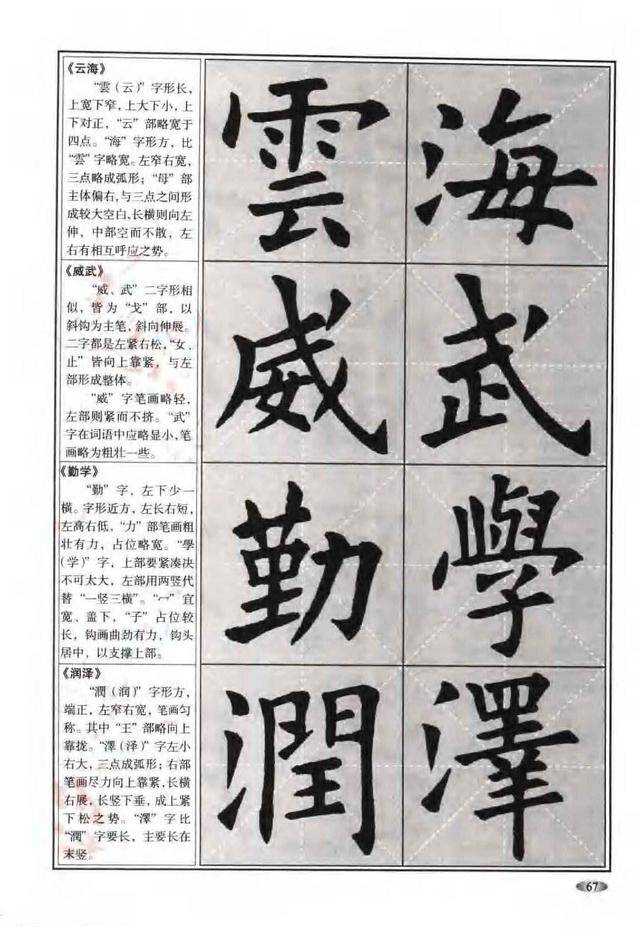 《云海》
“雲（云）”字形长，
上宽下窄，上大下小，上
下对正，“云”部略宽于
四点。“海”字形方，比
“雲”字略宽。左窄右宽，
三点略成弧形；“母”部
主体偏右，与三点之间形
成较大空白，长横则向左
伸，中部空而不散，左
右有相互呼应之势。
雲海
《威武》
“威、武”二字形相
似，皆为“戈”部，以
斜钩为主笔，斜向伸展。
二字都是左紧右松，“女、
止”皆向上靠紧，与左
部形成整体。
“威”字笔画略轻，
左部则紧而不挤。“武”
字在词语中应略显小，笔
画略为粗壮一些。
威武
《勤学》
“勤”字，左下少一
横。字形近方，左长右短，
左高右低，“力”部笔画粗
壮有力，占位略宽。“學
（学）”字，上部要紧凑决
不可太大，左部用两竖代
替“一竖三横”。“冖”宜
宽、盖下，“子”占位较
长，钩画曲劲有力，钩头
居中，以支撑上部。
勤學
《润泽》
“潤（润）”字形方，
端正，左窄右宽，笔画匀
称。其中“王”部略向上
靠拢。“澤（泽）”字左小
右大，三点成弧形；右部
笔画尽力向上靠紧，长横
右展，长竖下垂，成上紧
下松之势。“澤”字比
“潤”字要长，主要长在
末竖。
潤澤
67